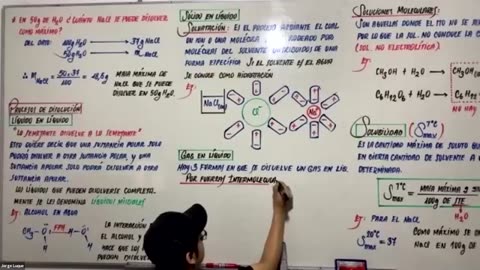 En 50g de H₂O ¿Cuánto NaCl se puede disolver
como máximo?
Del dato: 100g H₂O → 37g NaCl
50g H₂O →
Masa máxima de
NaCl que se puede
Disolver en 50g H₂O.
Procesos de Disolución:
Líquido en Líquido
"Lo semejante disuelve a lo semejante"
Esto quiere decir que una sustancia polar solo
podrá disolver a otra sustancia polar, y una
sustancia apolar solo podrá disolver a otra
sustancia apolar.
Los líquidos que pueden disolverse completa
mente se les denomina líquidos miscibles
Ej: Alcohol en agua
CH₃ - O
La interacción
el alcohol y
hace que los
Sólido en Líquido
Solvatación: Es el proceso mediante el cual
un ion o una molécula es rodeado por
moléculas del solvente distribuidos de una
forma específica. Si el solvente es el agua
se conoce como hidratación
Ej:
NaCl(s)
Cl⁻
Na⁺
Gas en Líquido
Hay 3 formas en que se disuelve un gas en líq.
Por fuerzas Intermolecula
Soluciones Moleculares:
Son aquellas donde el sto no se
por lo que la sol. no conduce la c
(Sol. no electrolítica)
Ej:
CH₃OH + H₂O → CH₃OH
C₆H₁₂O₆ + H₂O → C₆H
Solubilidad
Es la cantidad máxima de soluto que
en cierta cantidad de solvente a
determinada.
S T°C = masa máxima
100g de ste
H₂O
Ej: Para el NaCl
S 20°C = 37
Como máximo se
NaCl en 100g de
Jorge Luque